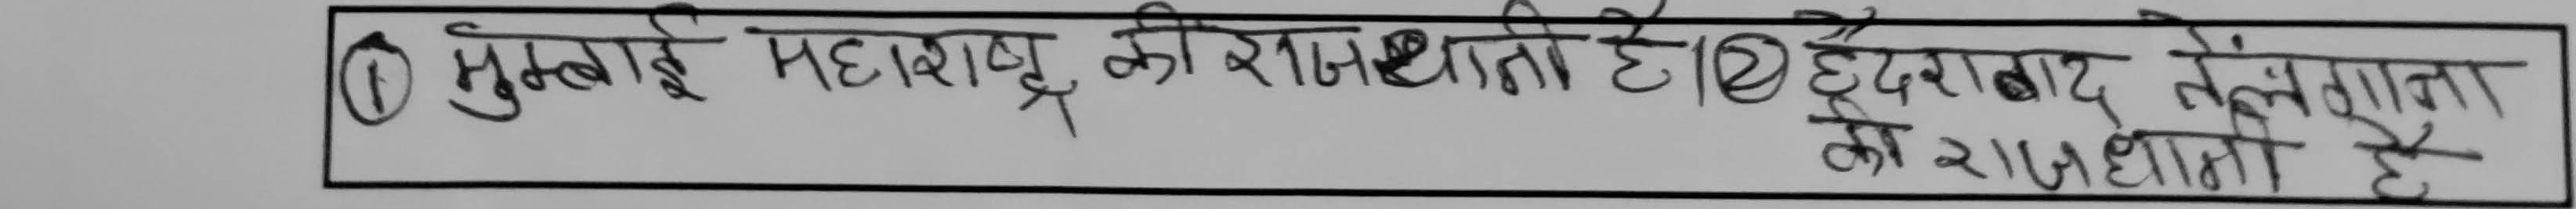 ① मुम्बाई महाराष्ट्र की राजधानी है।② हैदराबाद तेलंगाना
की राजधानी है